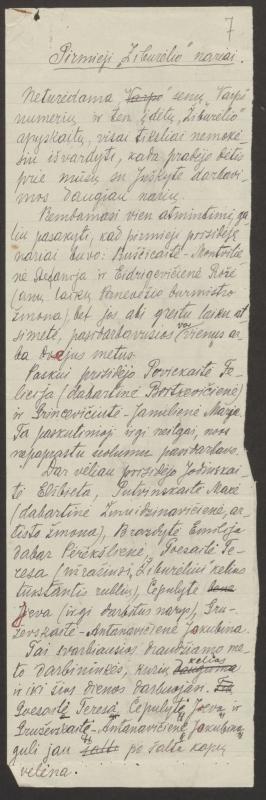 7
Pirmieji „Žiburėlio" nariai.
Neturėdama „Varpo" senų „Varpo"
numerių ir ten žodelų „Žiburėlio"
apyskaitų, visai tiksliai nemokė-
siu išvardyti, kada pradėjo dėtis
prie mūsų su Juškyte darbavi-
mos daugiau narių.
Remdamasi vien atmintimi, ga-
liu pasakyti, kad pirmieji prisidėję
nariai buvo: Ruščicaitė-Montvilie-
nė Stefanija ir Eidrigevičienė Rožė
(anų laikų Panevėžio burmistro
žmona), bet jos abi greitu laiku at-
simetė, pasidarbavusios vos vienus ar-
ba dvejus metus.
Paskui prisidėjo Povickaitė Fe-
licija (dabartinė Bortkevičienė)
ir Grincevičiutė-Janulienė Marija.
Ta paskutinioji irgi neilgai, nors
nepaprastu uolumu pasidarbavo.
Dar vėliau prisidėjo Jodinskai-
tė Elžbieta, Putvinskaitė Marė
(dabartinė Žmuidzinavičienė, ar-
tisto žmona), Brazdytė Emilija
dabar Perekšlienė, Goesaitė Te-
resa (užrašiusi „Žiburėliui" kelius
tūkstančius rublių), Čepulytė
Ieva (irgi darbštus narys), Gru-
ževskaitė-Antanavičienė Jakubina.
Tai svarbiausios draudžiamo me-
to darbininkės, kurių kelios
ir iki šios dienos darbuojasi.
Goesaitė Teresa, Čepulytė Ieva ir
Gruževskaitė-Antanavičienė Jakubina
guli jau po šalta kapų
velėna.